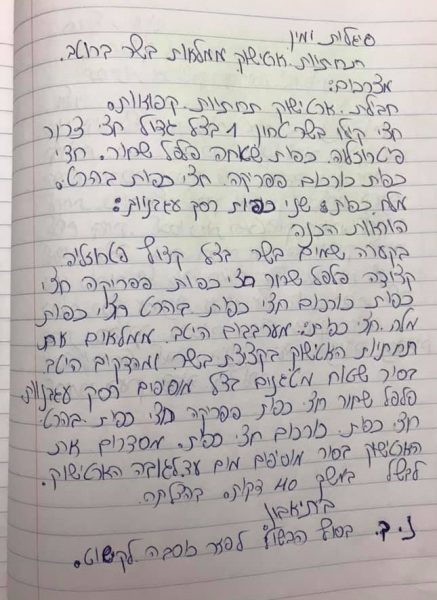 סיגלית ימין
תחתיות ארטישוק ממולאות בשר ברוטב.
מצרכים:
חבילת ארטישוק תחתיות קפואות.
חצי קילו בשר טחון 1 בצל גדול חצי צרור
פיטרוזליה. כפית שטוחה פלפל שחור. חצי
כפית כורכום פפריקה. חצי כפית בהרט.
מלח כפית שני כפות רסק עגבניות:
הוראות הכנה
בקערה שמים בשר בצל קצוץ פטרוזליה.
קצוצה פלפל שחור חצי כפית פפריקה חצי
כפית כורכום חצי כפית בהרט וחצי כפית
מלח חצי כפית: מערבבים היטב. ממלאים את
תחתיות הארטישוק בקציצת בשר ומהדקים היטב
בסיר שטוח מטגנים בצל מוסיפים רסק עגבניות
פלפל שחור חצי כפית פפריקה חצי כפית בהרט
חצי כפית כורכום חצי כפית. מסדרים את
הארטישוק בסיר מוסיפים מים עד לגובה הארטישוק.
לבשל במשך 40 דקות. בהצלחה.
בתיאבון
נ.ב. בסוף הבישול לפזר כוסברה לקישוט.